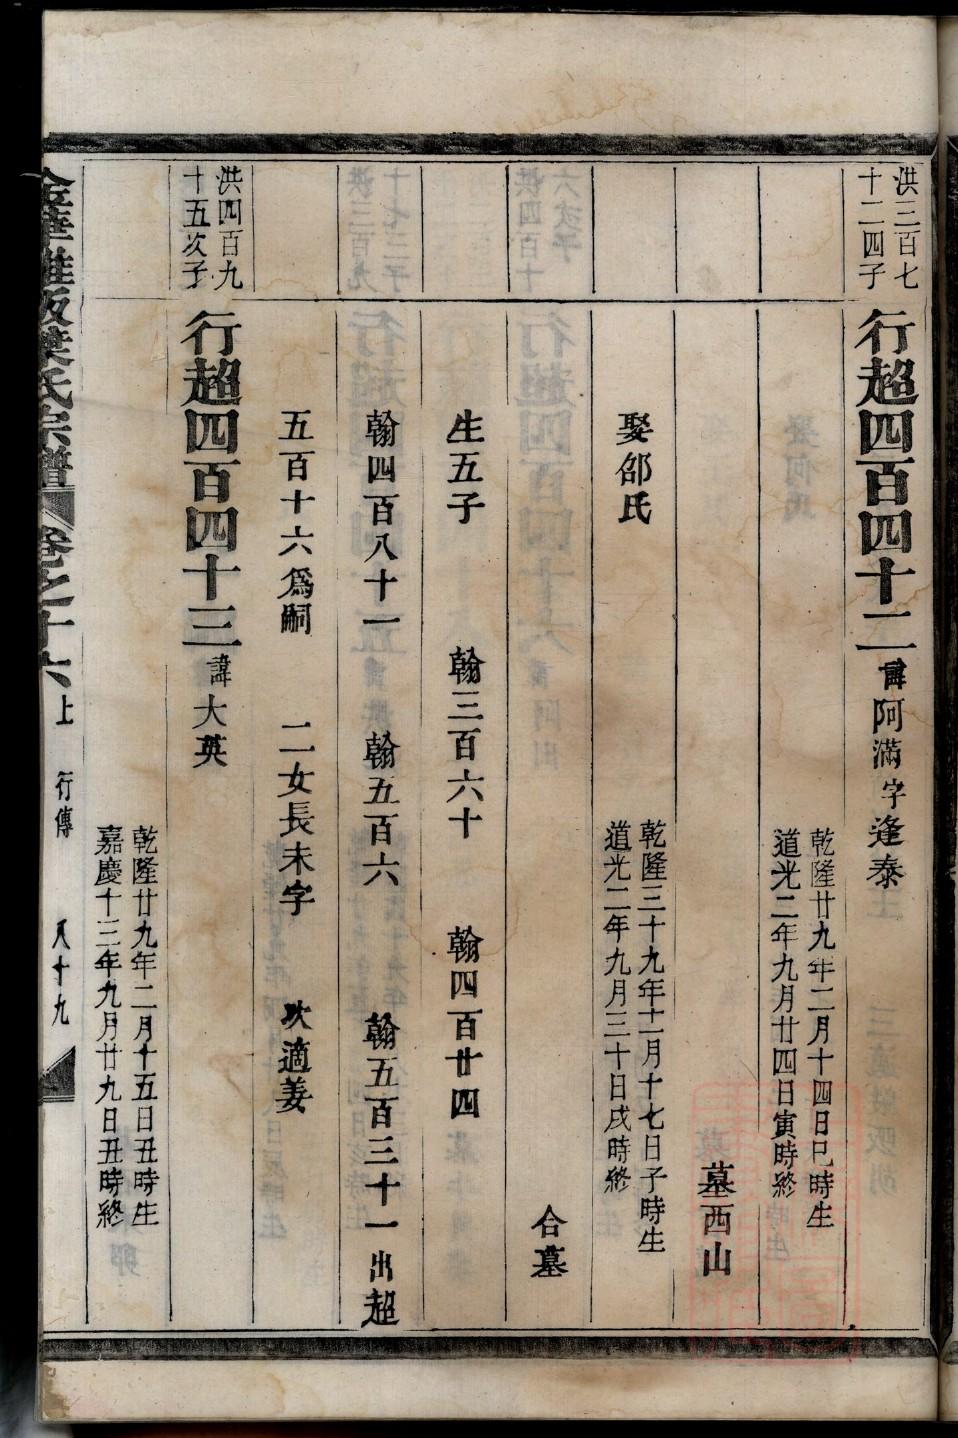 洪三百七
十二四子
行超四百四十二 諱阿滿字逢泰
乾隆廿九年二月十四日巳時生
道光二年九月廿四日寅時終
墓西山
娶邵氏
乾隆三十九年十一月十七日子時生
道光二年九月三十日戌時終
合墓
生五子 翰三百六十 翰四百廿四
翰四百八十一 翰五百六 翰五百三十一出超
五百十六爲嗣 二女長未字 次適姜
洪四百九
十五次子
行超四百四十三 諱大英
乾隆廿九年二月十五日丑時生
嘉慶十三年九月廿九日丑時終
金華 畈葉氏宗譜 卷之十六上 行傳 八十九